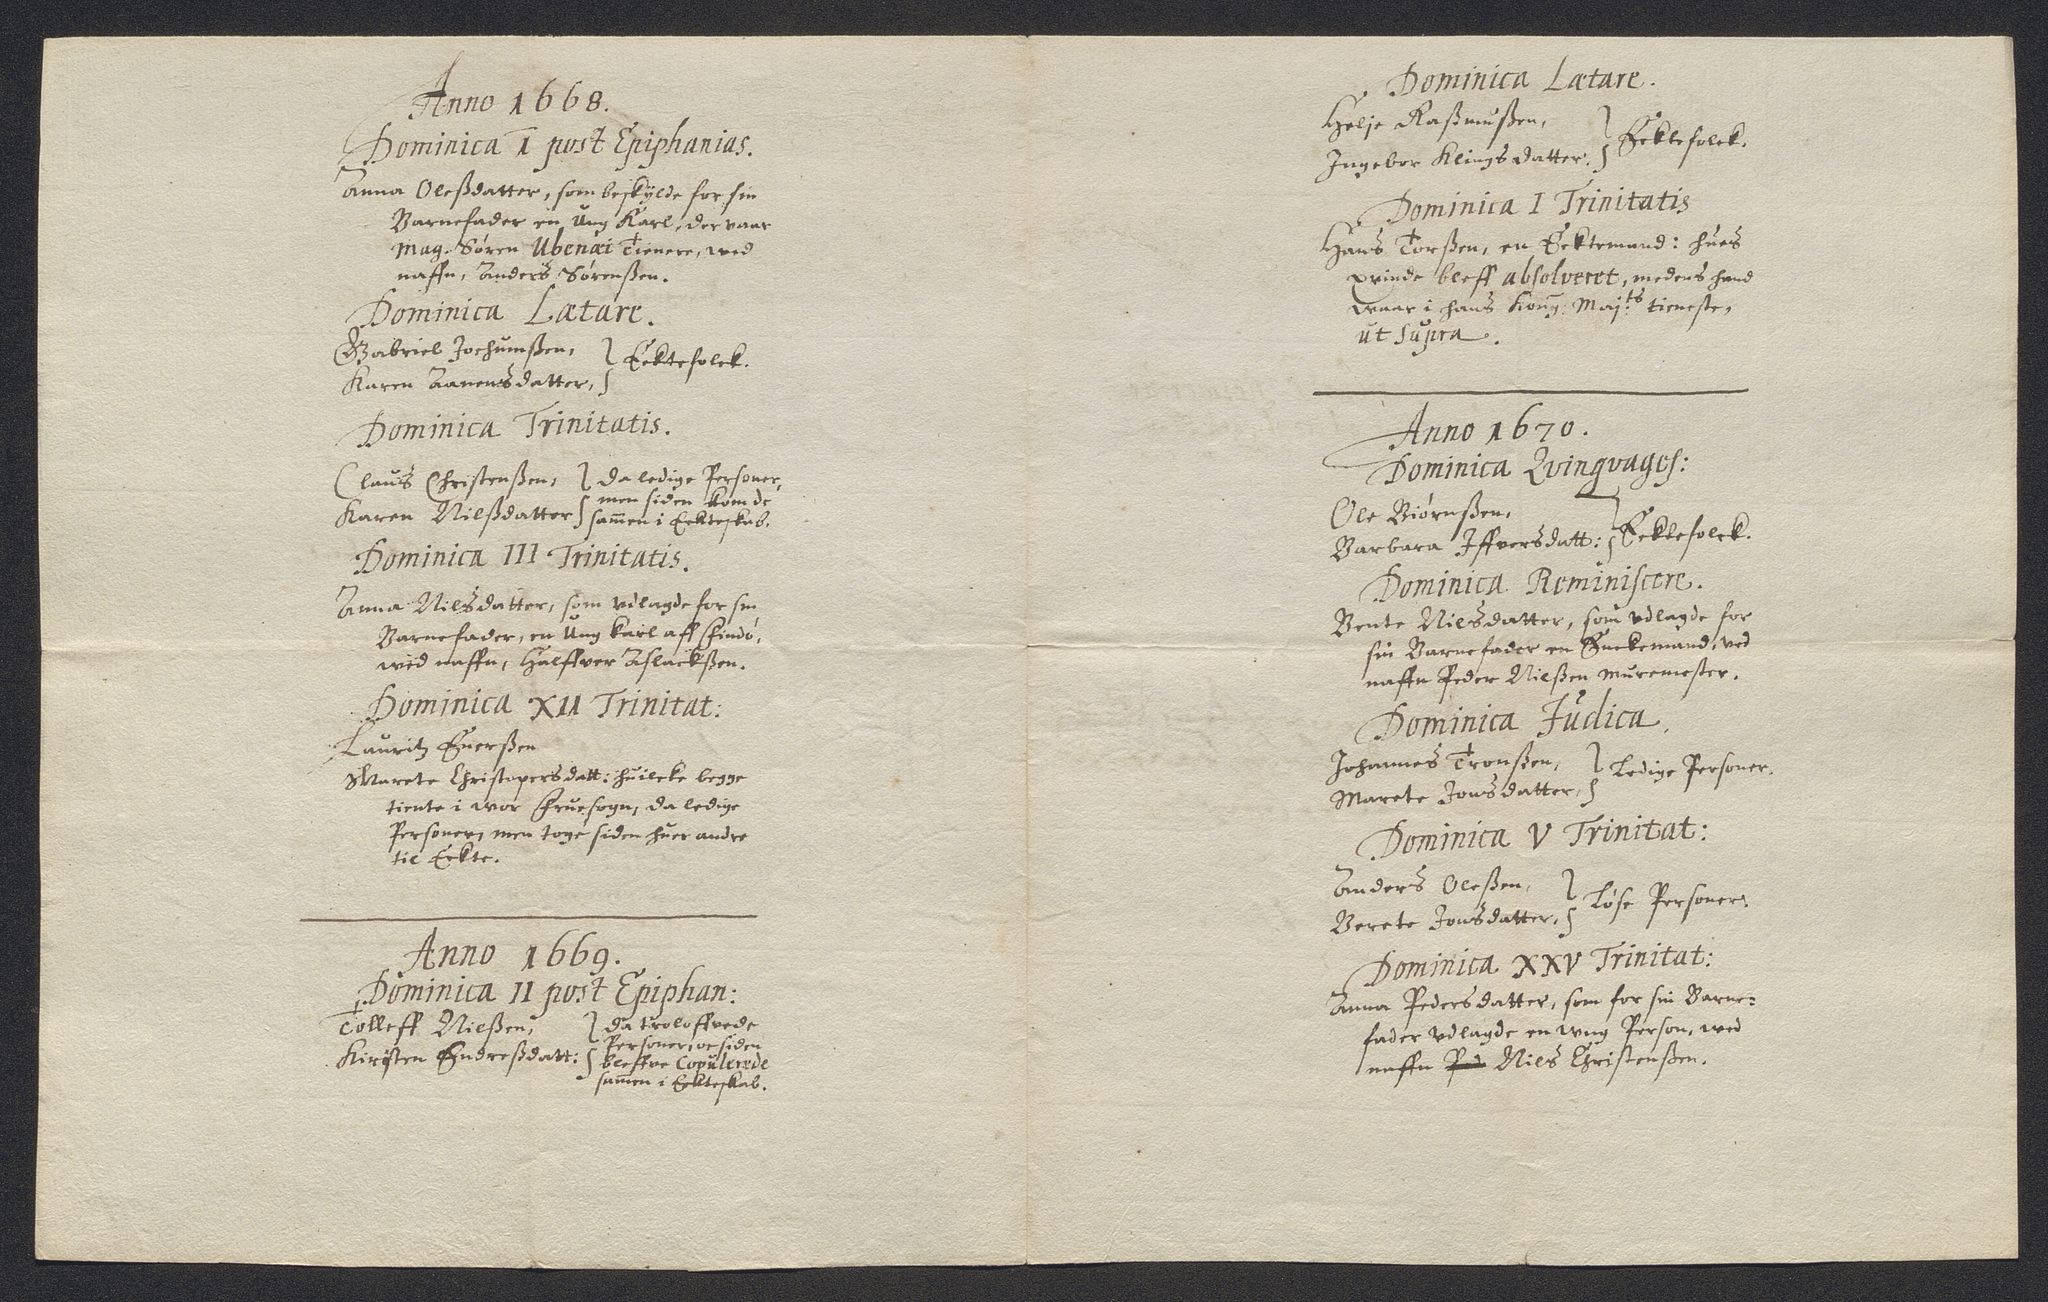 Anno 1668.
Dominica I post Epiphanias.
Anna Oleßdatter, som beskylde for sin
Barnefader en Ung Karl, der vaar
Mag. Søren Ubenæi Tienere, wed
naffn, Anders Sørenßen.
Dominica Lætare.
Gabriel Jochumßen,
Karen Aanensdatter, } Ecktefolck.
Dominica Trinitatis.
Claus Christenßen, } da ledige Personer,
men siden kom de
Karen Nilßdatter } sam̄en i Eckteskab.
Dominica III Trinitatis.
Anna Nilsdatter, som udlagde for sin
Barnefader, en Ung karl aff Findø,
wed naffn, Halffver Aslackßen.
Dominica XII Trinitat:
Lauritz Enerßen
Marete Christopersdatt: huilcke begge
tiente i wor Fruesogn, da ledige
Personer, men toge siden huer andre
til Eckte.
Anno 1669.
Dominica II post Epiphan:
Tolleff Nielßen, } da troloffvede
Personer, oc siden
Kirsten Endreßdatt: } bleffve Copulerede
sam̄en i Eckteskab.
Dominica Lætare.
Helje Raßmußen,
Ingebor Klingsdatter. } Ecktefolck.
Dominica I Trinitatis
Hans Torßen, en Ecktemand: hues
qvinde bleff absolveret, medens hand
waar i hans Kong: Maj:ts tieneste,
ut supra.
Anno 1670.
Dominica Qvinqvages:
Ole Biørnßen,
Barbara Iffversdatt: } Ecktefolck.
Dominica Reminiscere.
Bente Nilsdatter, som udlagde for
sin Barnefader en Enckemand, ved
naffn Peder Nilßen muremester.
Dominica Judica.
Johannes Tronßen,
Marete Jonsdatter, } Ledige Personer.
Dominica V Trinitat:
Anders Oleßen,
Berete Jonsdatter, } Løse Personer.
Dominica XXV Trinitat:
Anna Pedersdatter, som for sin Barne-
fader udlagde en ung Person, wed
naffn Ped Nils Christenßen.